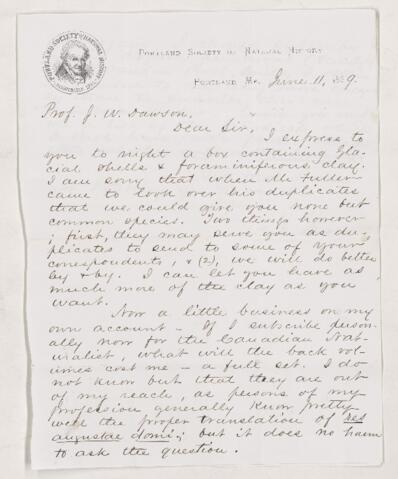 PORTLAND SOCIETY OF NATURAL HISTORY
PORTLAND ME. June 11, 1889.
Prof. J. W. Dawson,
Dear Sir,
I express to
you to night a box containing Gla-
cial shells & foraminiferous clay.
I am sorry that when Mr Fuller
came to look over his duplicates
that we could give you none but
common species. Two things however
; first, they may serve you as du-
plicates to send to some of your
correspondents, & (2), we will do better
by & by. I can let you have as
much more of the clay as you
want.
Now a little business on my
own account — If I subscribe person-
ally now for the Canadian Nat-
uralist, what will the back vol-
umes cost me — a full set. I do
not know but that they are out
of my reach, as persons of my
profession generally know pretty
well the proper translation of res
augustae domi; but it does no harm
to ask the question.